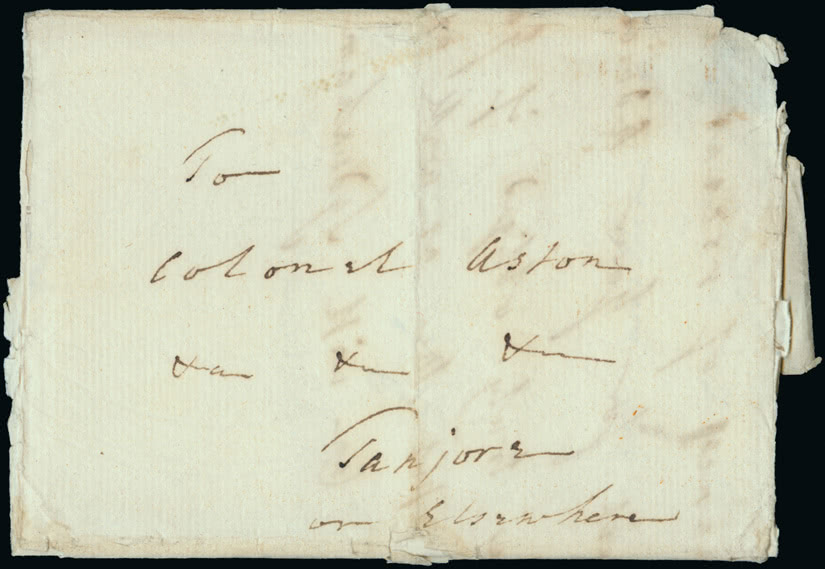 To
Colonel Aston
&a &a &a
Tanjore
or Elsewhere